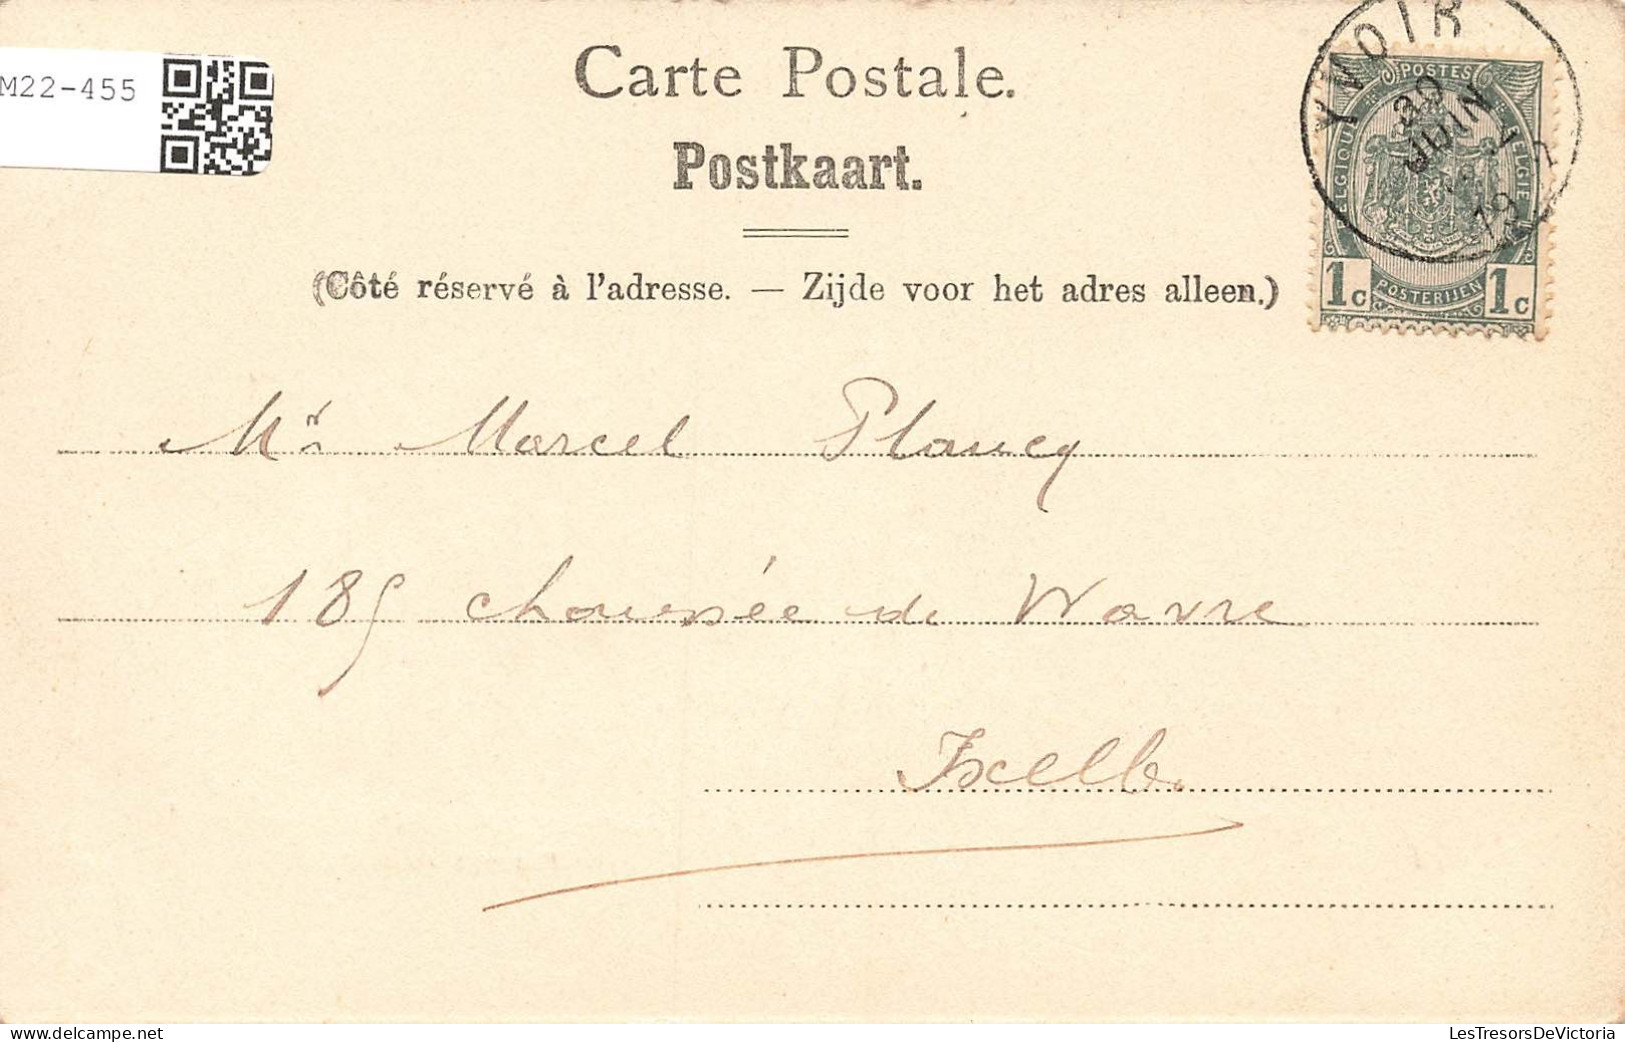 M22-455
Carte Postale.
Postkaart.
(Côté réservé à l'adresse. — Zijde voor het adres alleen.)
YVOIR
30
JUIN
19
POSTES
BELGIQUE
BELGIE
1c POSTERIJEN 1c
Mr Marcel Plancq
185 chaussée de Wavre
Ixelles
delcampe.net
LesTresorsDeVictoria